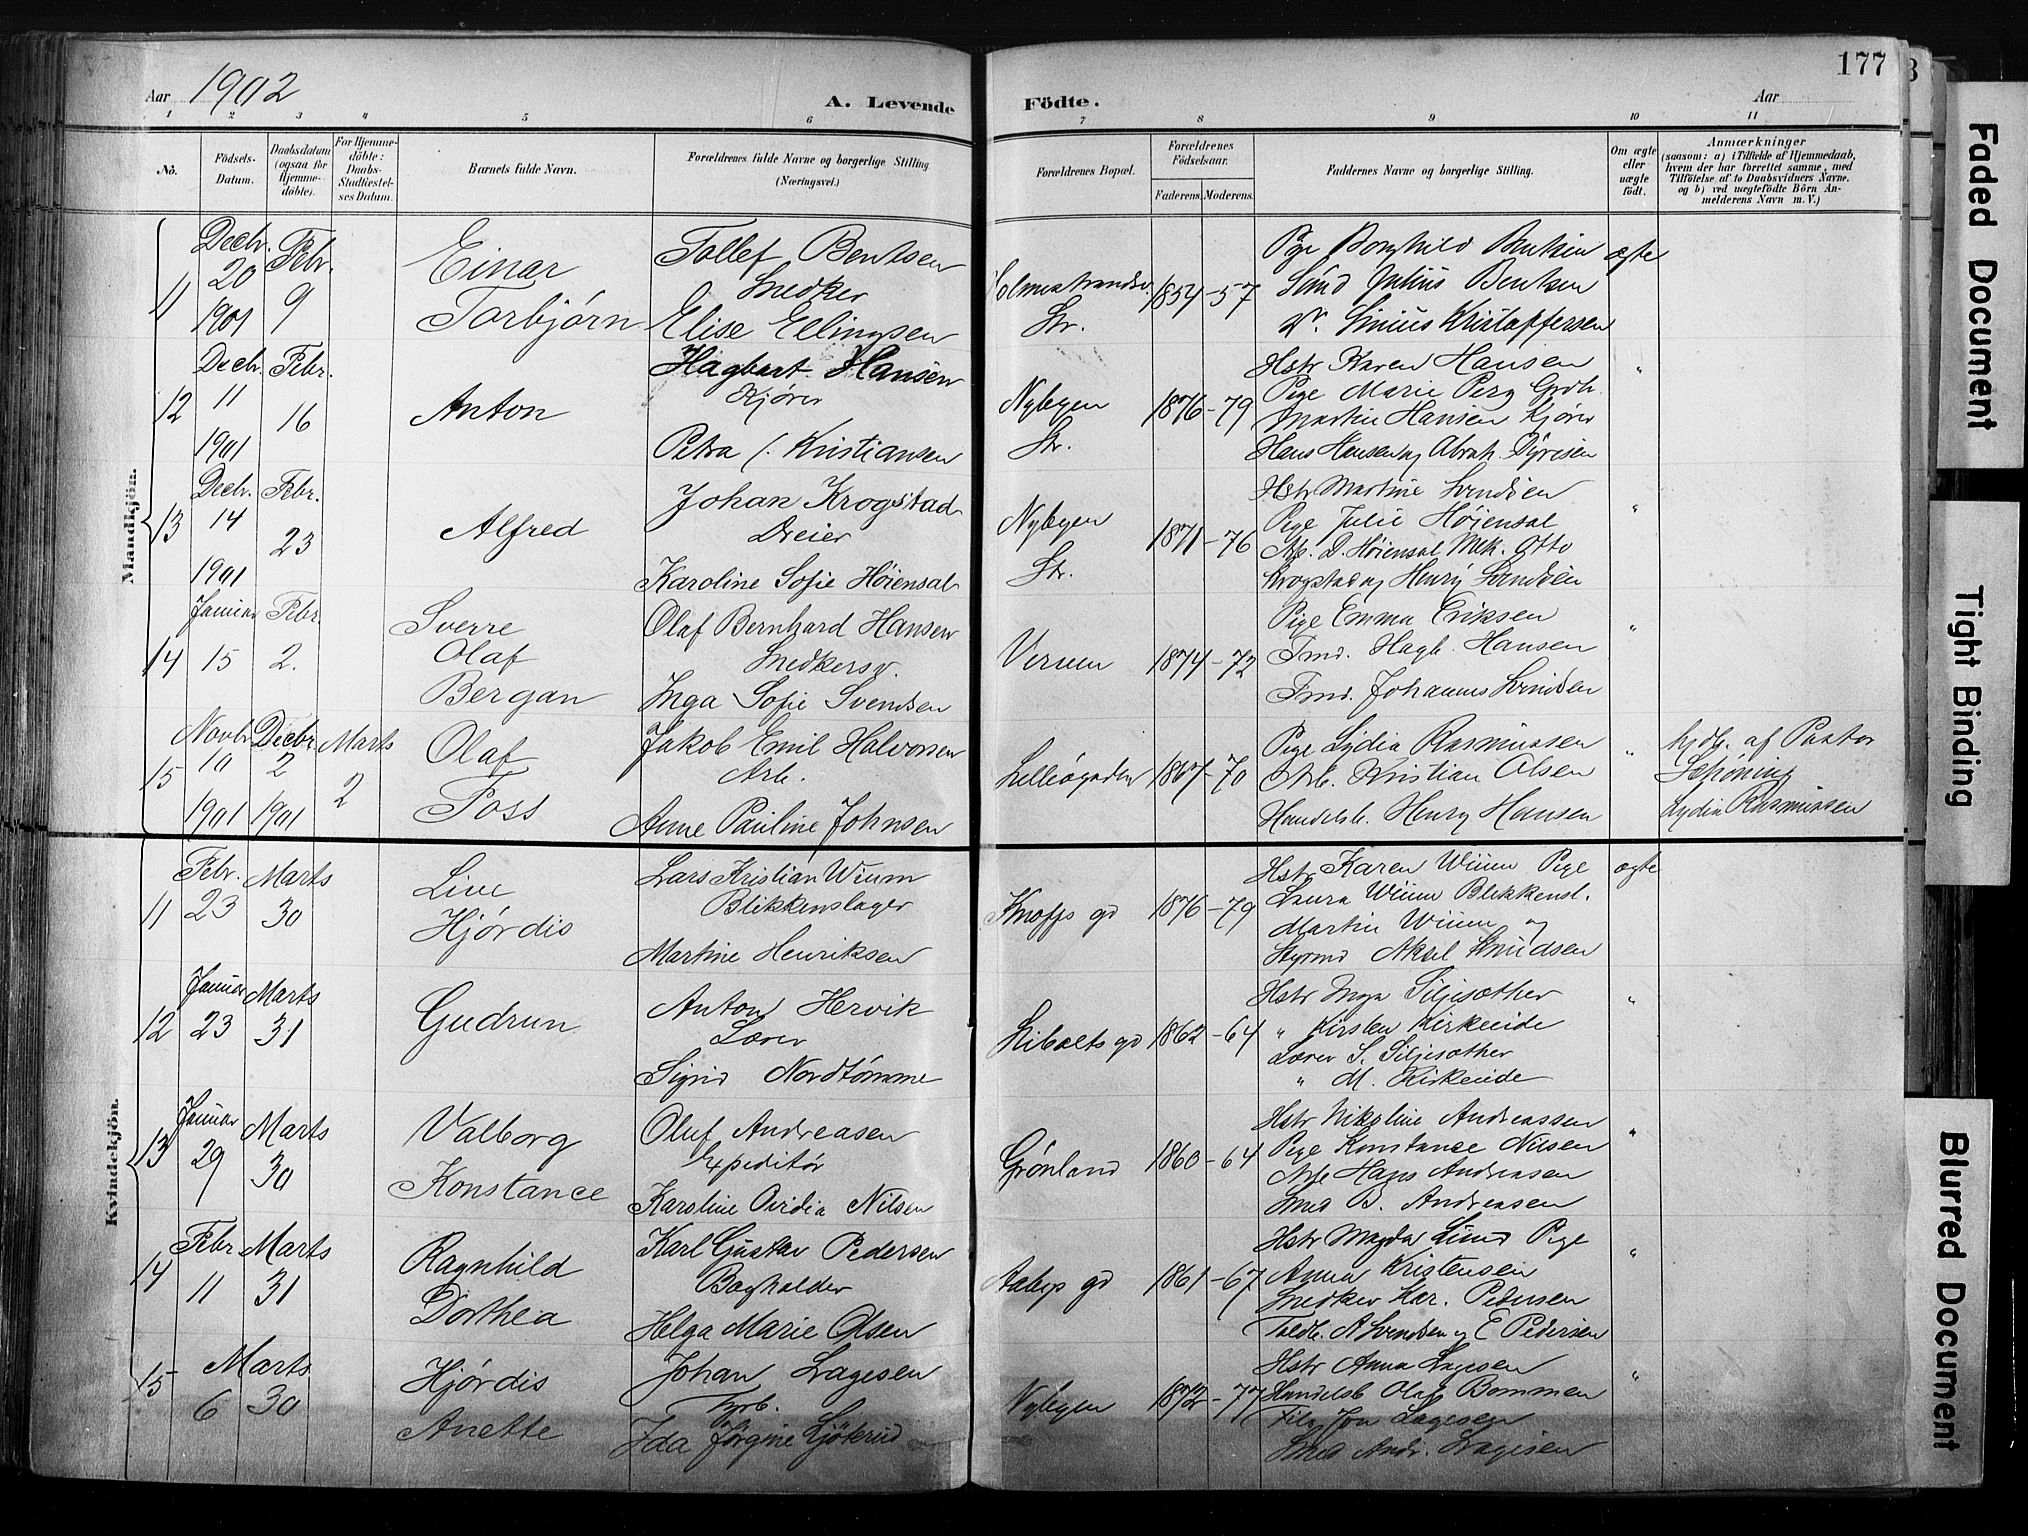 Aar 1902
A. Levende Födte.
Aar
177
1 2 3 4 5 6 7 8 9 10 11
No.
Födsels-Datum.
Daabsdatum (ogsaa for Hjemme-döbte).
For Hjemme-döbte: Daabs-Stadfæstel-ses Datum.
Barnets fulde Navn.
Forældrenes fulde Navne og borgerlige Stilling. (Næringsvei.)
Forældrenes Bopæl.
Forældrenes Födselsaar.
Faderens. Moderens.
Faddernes Navne og borgerlige Stilling.
Om ægte eller uægte födt.
Anmærkninger
(saasom: a) i Tilfælde af Hjemmedaab, hvem der har forrettet samme, med Tilföielse af to Daabsvidners Navne. og b) ved uægtefödte Börn An-melderens Navn m. V.)
Mandkjön.
11 Decbr. 20 1901
Febr. 9
Einar
Torbjørn
Tollef Bentsen
Snedker
Elise Ellingsen
Holmestrandsv.
Str.
1854-57
Pige Borghild Bentsen
Stud Julius Bentsen
V. Sinius Kristoffersen
ægte
12 Decbr. 11 1901
Febr. 16
Anton
Hagbart Hansen
Kjører
Petra C. Kristiansen
Nybyen
Str.
1876-79
Hstr Karen Hansen
Pige Marie Berg
Martin Hansen Kjører
Hans Hansen og Abrah.
"
13 Decbr. 14 1901
Febr. 23
Alfred
Johan Krogstad
Dreier
Karoline Sofie Høiensal
Nybyen
Str.
1871-76
Hstr Martine Svendsen
Pige Julie Høiensal
Arb. D. Høiensal Mek. Otto
Krogstad og Henry Svendsen
"
14 Januar 15
Febr. 2.
Sverre
Olaf
Bergan
Olaf Bernhard Hansen
Snedkersv.
Inga Sofie Svendsen
Verven
1874-72
Pige Emma Eriksen
Tmd. Hagb. Hansen
Tmd. Johannes Svendsen
"
15 Novbr. 10 1901
Decbr. 2 1901
Marts 2
Olaf
Foss
Jakob Emil Halvorsen
Arb.
Anne Pauline Johnsen
Lilleøgaden
1867-70
Pige Lydia Rasmussen
Arb. Kristian Olsen
Handelsb. Henry Hansen
"
hjdb. af Pastor
Schøning
Lydia Rasmussen
Kvindekjön.
11 Febr. 23
Marts 30
Live
Hjørdis
Lars Kristian Wium
Blikkenslager
Martine Henriksen
Knoffs gd
1876-79
Hstr Karen Wium Pige
Laura Wium Blikkensl.
Martin Wium og
Styrmd Aksel Knudsen
ægte
12 Januar 23
Marts 31
Gudrun
Anton Hervik
Lærer
Sigrid Nordtømme
Libælts gd
1862-64
Hstr Inga Siljesæther
" Kirsten Kirkeeide
Lærer S. Siljesæther
" M. Kirkeeide
"
13 Januar 29
Marts 30
Valborg
Konstance
Oluf Andreasen
Expeditør
Karoline Ovidia Nilsen
Grønland
1860-64
Hstr Nikoline Andreassen
Pige Konstance Nilsen
Arb Hans Andreasen
Smed B. Andreasen
"
14 Febr 11
Marts 31
Ragnhild
Dorthea
Karl Gustav Pedersen
Bogholder
Helga Marie Olsen
Aabys gd
1861-67
Hstr Magda Lund Pige
Anna Kristensen
Snedker Kar. Pedersen
Toldb. A Svendsen og E Pedersen
"
15 Marts 6
30
Hjørdis
Anette
Johan Lagesen
Typb.
Ida Jørgine Gjøterud
Nybyen
1872-77
Hstr Anna Lagesen
Handelsb Olaf Bommen
Filh. Jon Lagesen
Smed Andr. Lagesen
"
Faded Document
Tight Binding
Blurred Document